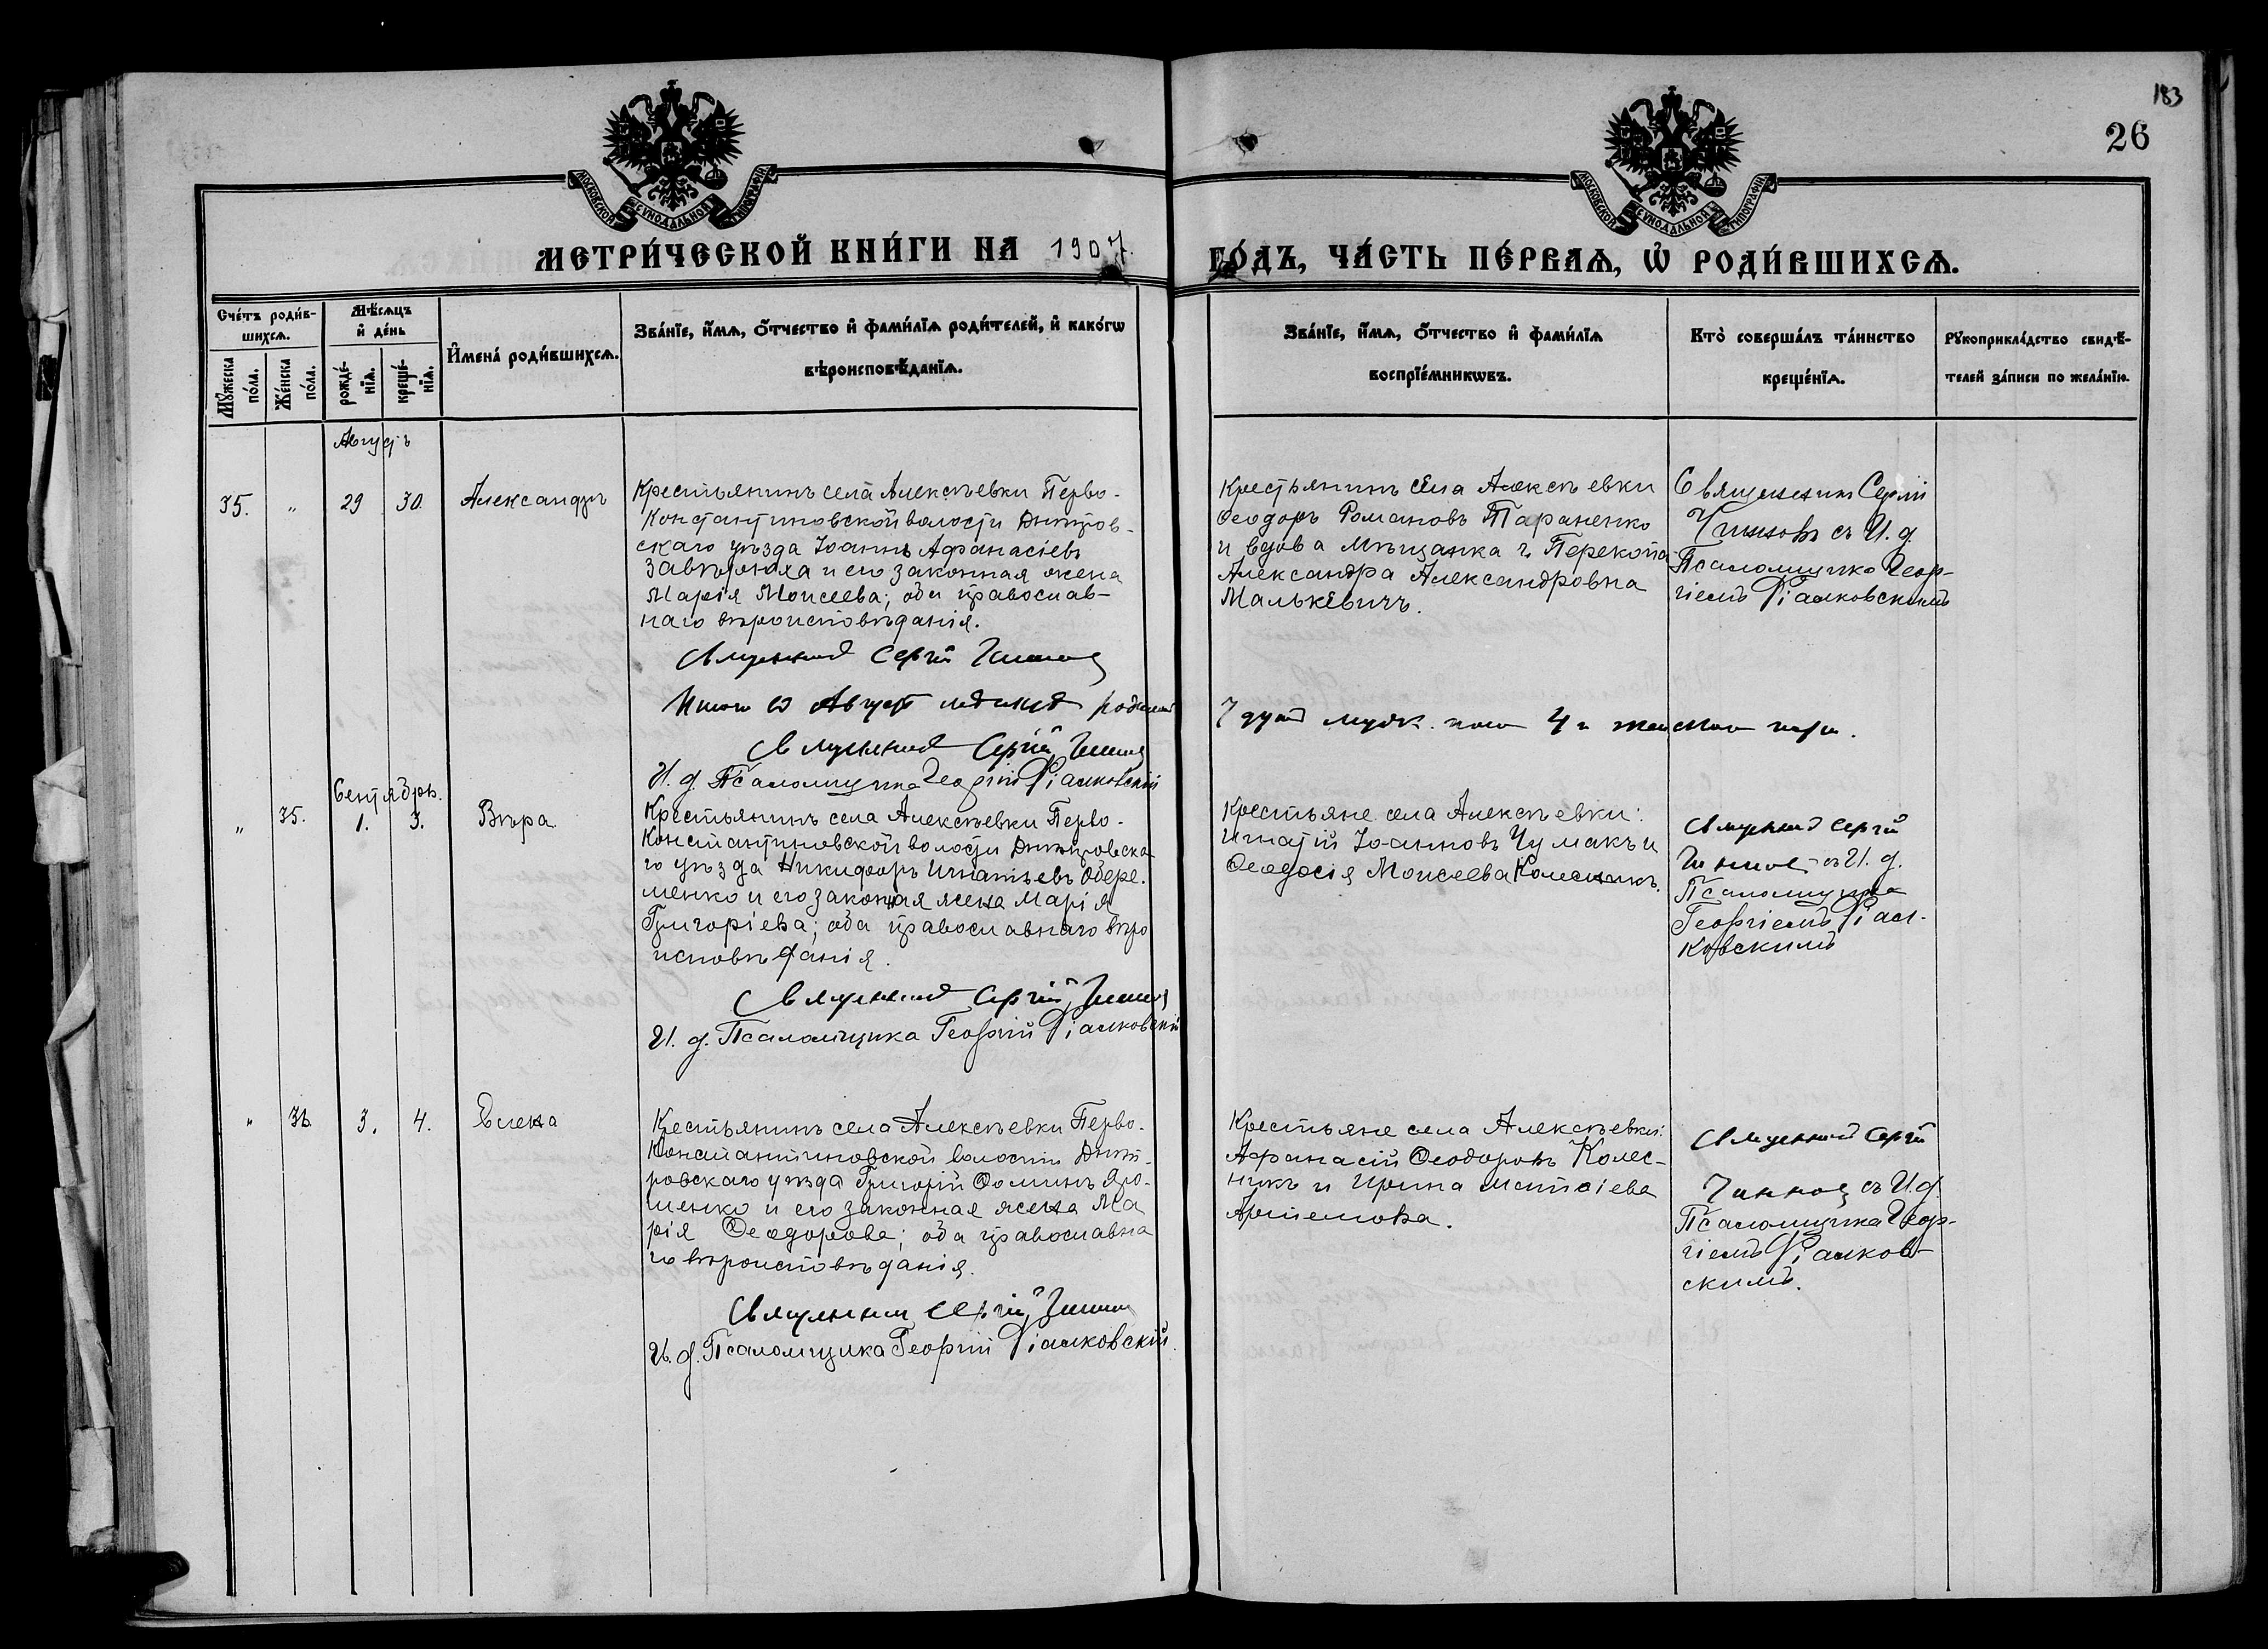 183
26
МОСКОВСКОЙ СѴНОДАЛЬНОЙ ТИПОГРАФІИ
МОСКОВСКОЙ СѴНОДАЛЬНОЙ ТИПОГРАФІИ
МЕТРИ́ЧЕСКОЙ КНИ́ГИ НА 1907.
ГО́ДЪ, ЧА́СТЬ ПЕ́РВАѦ, Ѡ҆ РОДИ́ВШИХСѦ.
Сче́тъ роди́в-
шихсѧ.
Мꙋ́жеска по́ла.
Же́нска по́ла.
Мѣ́сѧцъ
и҆ де́нь
рожде́-
нїѧ.
креще́-
нїѧ.
И҆мена̀ роди́вшихсѧ.
Зва́нїе, и҆́мѧ, ѻ҆́тчество и҆ фами́лїѧ роди́телей, и҆ како́гѡ
вѣроисповѣ́данїѧ.
Зва́нїе, и҆́мѧ, ѻ҆́тчество и҆ фами́лїѧ
воспрїе́мникѡвъ.
Кто̀ соверша́лъ та́инство
креще́нїѧ.
Рꙋкоприкла́дство свидѣ́-
телей за́писи по жела́нїю.
Августъ
35. " 29 30. Александръ
Крестьянинъ села Алексѣевки Перво-
Константиновской волости Днѣпров-
скаго уѣзда Іоаннъ Афанасіевъ
Завѣрюха и его законная жена
Марія Моисеева; оба православ-
наго вѣроисповѣданія.
Священникъ Сергій
Крестьянинъ села Алексѣевки
Ѳеодоръ Романовъ Тараненко
и вдова мѣщанка г. Перекопа
Александра Александровна
Малькевичъ.
Священникъ Сергій
съ И. д.
Псаломщика Геор-
гіемъ Фіалковскимъ
Итого въ Августѣ мѣсяцѣ
7 душъ муж. пола 4 женскаго пола.
Священникъ Сергій
И. д. Псаломщика Георгій Фіалковскій
Сентябрь.
" 35. 1. 3. Вѣра
Крестьянинъ села Алексѣевки Перво-
Константиновской волости Днѣпровска-
го уѣзда Никифоръ Игнатьевъ Обере-
менко и его законная жена Марія
Григоріева; оба православнаго вѣро
исповѣданія.
Священникъ Сергій
И. д. Псаломщика Георгій Фіалковскій
Крестьяне села Алексѣевки:
Игнатій Іоанновъ Чумакъ и
Ѳеодосія Моисеева Колесникъ.
Священникъ Сергій
съ И. д.
Псаломщика
Георгіемъ Фіал-
ковскимъ
" 36. 3. 4. Елена
Крестьянинъ села Алексѣевки Перво-
Константиновской волости Днѣп-
ровскаго уѣзда Григорій Ѳоминъ Яро-
шенко и его законная жена Ма
рія Ѳеодорова; оба православна
го вѣроисповѣданія.
Священникъ Сергій
И. д. Псаломщика Георгій Фіалковскій.
Крестьяне села Алексѣевки:
Афанасій Ѳеодоровъ Колес-
никъ и Ирина
Артемова.
Священникъ Сергій
съ И. д.
Псаломщика Геор-
гіемъ Фіалков-
скимъ.